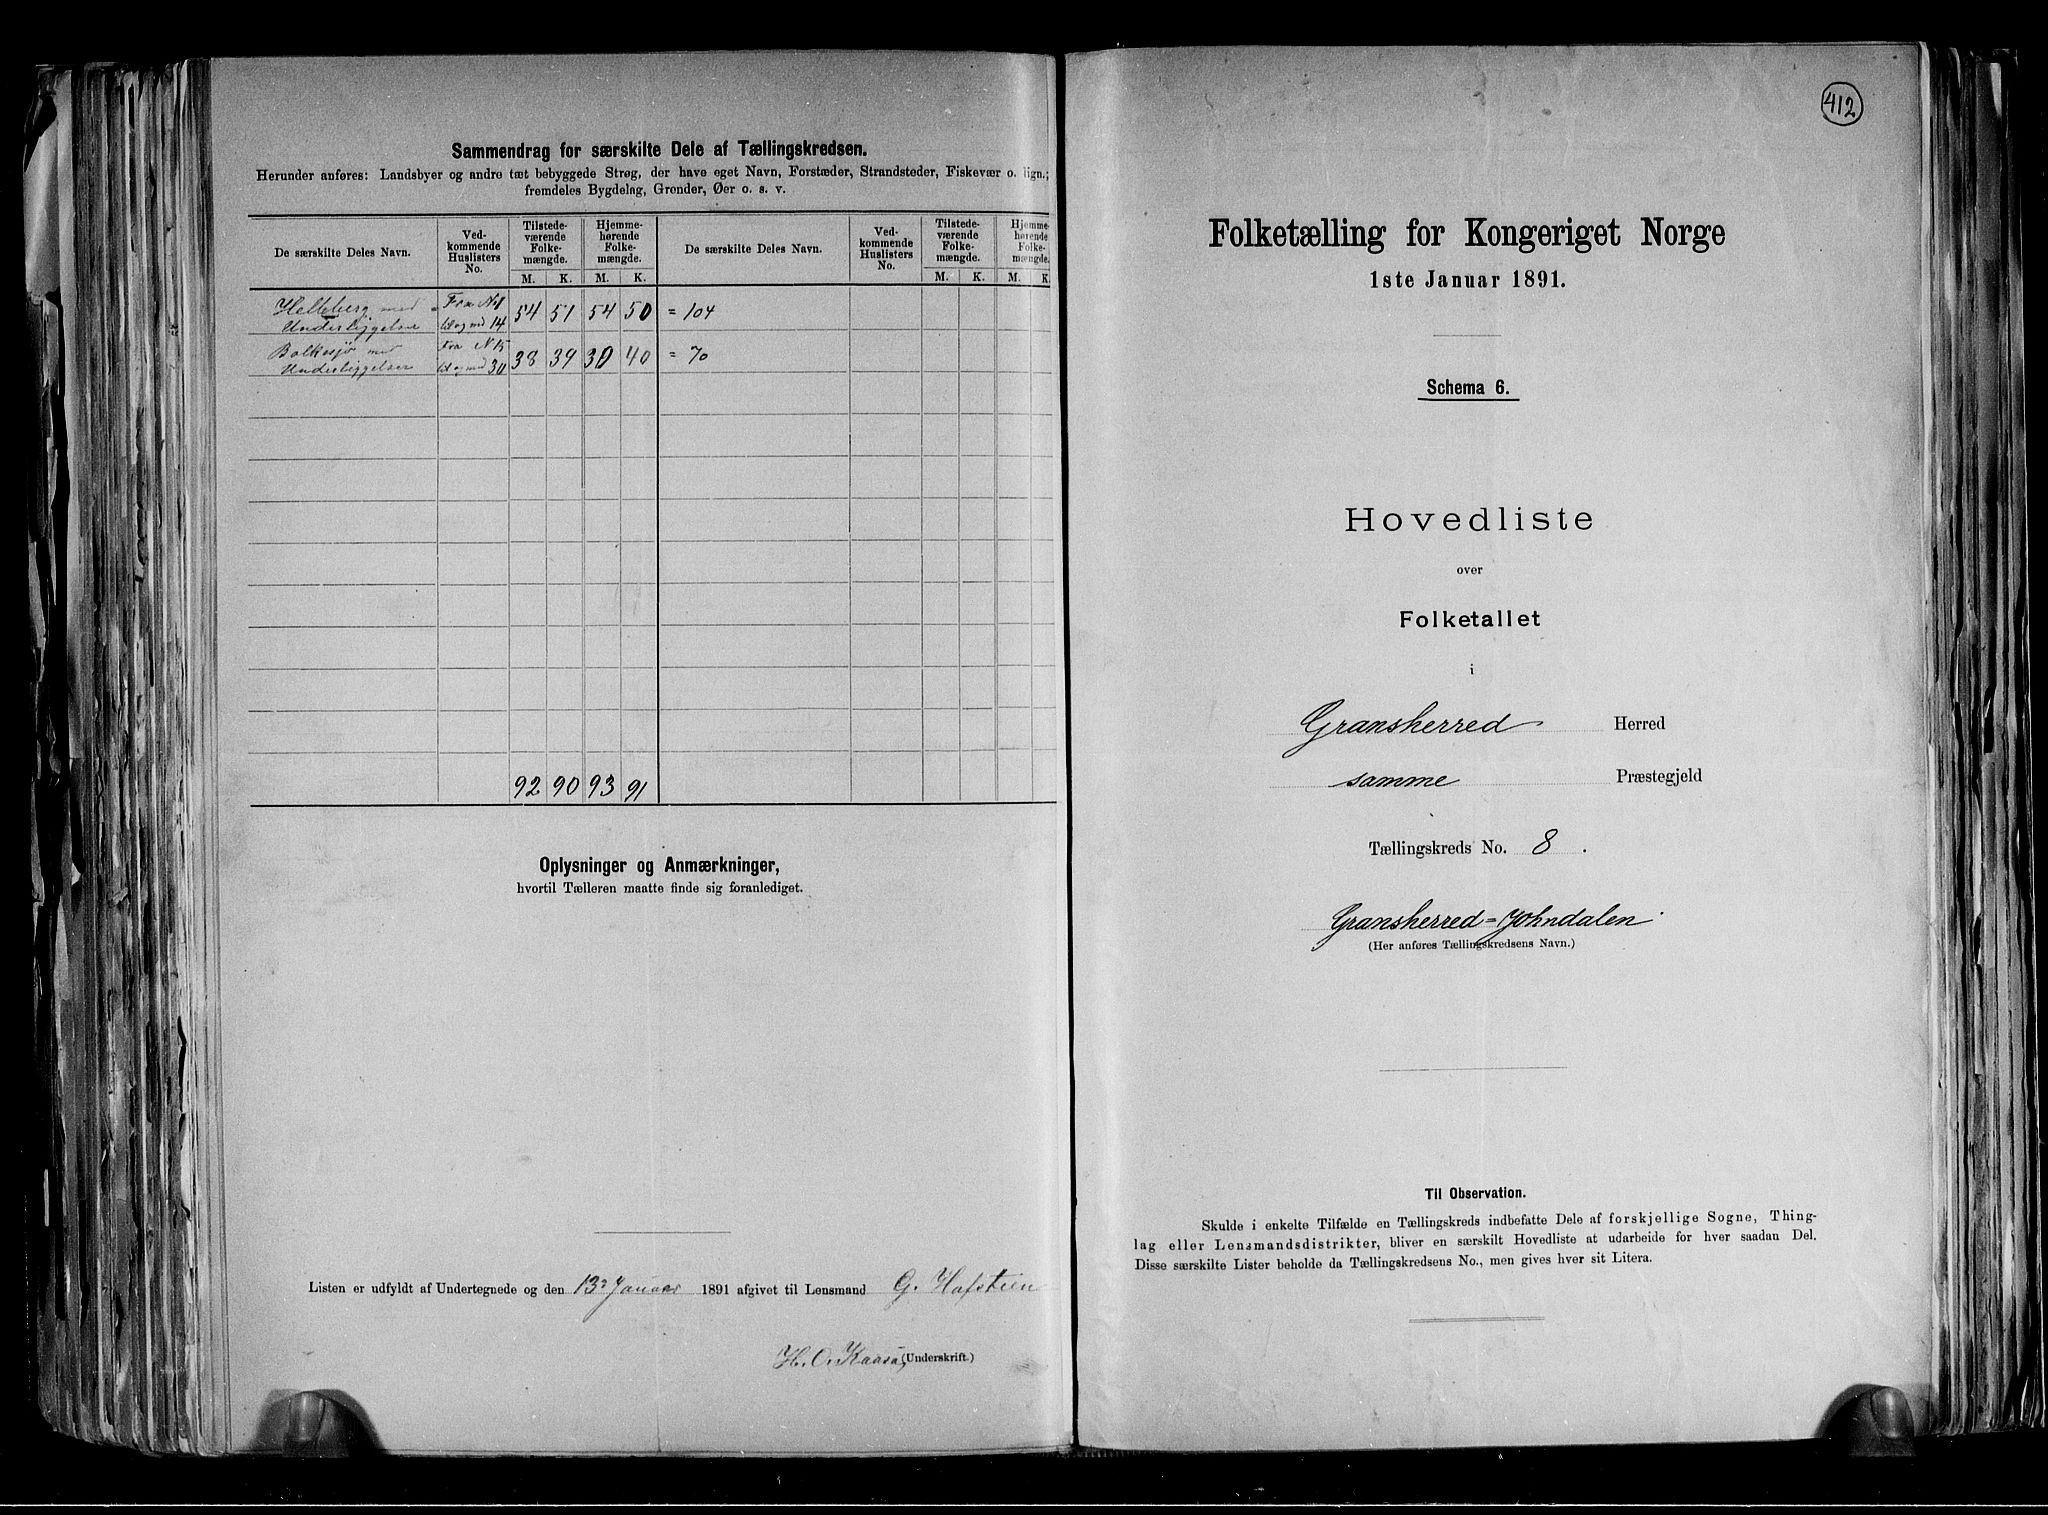 Sammendrag for særskilte Dele af Tællingskredsen.
Herunder anføres: Landsbyer og andre tæt bebyggede Strøg, der have eget Navn, Forstæder, Strandsteder, Fiskevær o. lign.;
fremdeles Bygdelag, Grender, Øer o. s. v.
De særskilte Deles Navn. Ved-kommende Huslisters No. Tilstede-værende Folke-mængde. Hjemme-hørende Folke-mængde. De særskilte Deles Navn. Ved-kommende Huslisters No. Tilstede-værende Folke-mængde. Hjemme-hørende Folke-mængde.
M. K. M. K. M. K. M. K.
Helleberg med Fra N1 54 51 54 50 = 104
Underliggelse til og med 14
Bolkesjø med Fra N 15 38 39 30 40 = 70
Underliggelser til og med 30
92 90 93 91
Oplysninger og Anmærkninger,
hvortil Tælleren maatte finde sig foranlediget.
Listen er udfyldt af Undertegnede og den 13 Januar 1891 afgivet til Lensmand G. Hafstien
H. O. Kaasa (Underskrift.)
412
Folketælling for Kongeriget Norge
1ste Januar 1891.
Schema 6.
Hovedliste
over
Folketallet
i
Gransherred Herred
samme Præstegjeld
Tællingskreds No. 8.
Gransherred=Johndalen
(Her anføres Tællingskredsens Navn.)
Til Observation.
Skulde i enkelte Tilfælde en Tællingskreds indbefatte Dele af forskjellige Sogne, Thing-
lag eller Lensmandsdistrikter, bliver en særskilt Hovedliste at udarbeide for hver saadan Del.
Disse særskilte Lister beholde da Tællingskredsens No., men gives hver sit Litera.